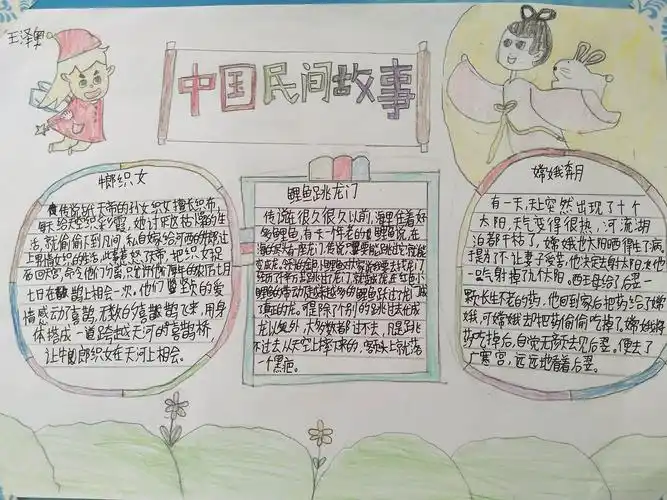 王泽奥
中国民间故事
牛郎织女
传说天帝的孙女织女擅长织布,
每天给天空织彩霞,她讨厌这枯燥的生
活,就偷偷下到凡间,私自嫁给河西的牛郎过
上男耕女织的生活,此事惹怒了天帝,把织女捉
回天宫,命令他们分离,只允许他们每年的农历七月
七日在鹊桥上相会一次。他们坚贞的爱
情感动了喜鹊,无数的喜鹊飞来,用身
体搭成一道跨越天河的喜鹊桥,
让牛郎织女在天河上相会。
鲤鱼跳龙门
传说在很久很久以前,海里住着好
多鲤鱼,有一个年老的鲤鱼说,在
龙以外,大多数都过不去,凡是跳
不过去,从天空上摔下来的,客头上就落
一个黑疤。
嫦娥奔月
有一天,天上突然出现了十个
太阳,天气变得很热,河流湖
泊都干枯了,嫦娥也太阳晒得生了病,
于是为了不让妻子受苦,他决定去射太阳,他
一气射掉了九个太阳。西王母给了后羿一
颗长生不老的药,他回到家后把药给了嫦
娥,可嫦娥却把药偷偷吃掉了,嫦娥将
药吃掉后,自觉无颜去见后羿,便去了
广寒宫,远远地看着后羿。